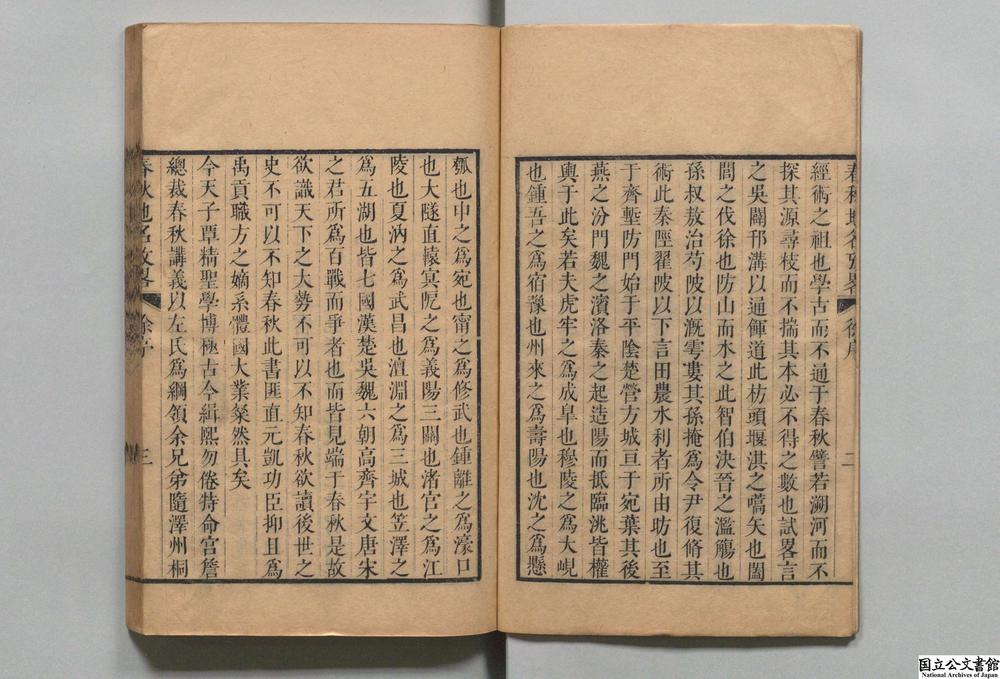 春秋地名攷畧 徐序 二
經術之祖也學古而不通于春秋譬若溯河而不
探其源尋枝而不揣其本必不得之數也試畧言
之吳闕邗溝以通餫道此枋頭堰淇之嚆矢也闔
閭之伐徐也防山而水之此智伯決晉之濫觴也
孫叔敖治芍陂以漑雩婁其孫掩爲令尹復脩其
術此秦陘翟陂以下言田農水利者所由昉也至
于齊塹防門始于平陰楚營方城亘于宛葉其後
燕之汾門魏之濱洛秦之起造陽而抵臨洮皆權
輿于此矣若夫虎牢之爲成皐也穆陵之爲大峴
也鍾吾之爲宿豫也州來之爲壽陽也沈之爲懸
瓠也申之爲宛也甯之爲修武也鍾離之爲濠口
也大隧直轅冥阨之爲義陽三關也渚宮之爲江
陵也夏汭之爲武昌也澶淵之爲三城也笠澤之
爲五湖也皆七國漢楚吳魏六朝高齊宇文唐宋
之君所爲百戰而爭者也而皆見端于春秋是故
欲識天下之大勢不可以不知春秋欲讀後世之
史不可以不知春秋此書匪直元凱功臣抑且爲
禹貢職方之嫡系體國大業粲然具矣
今天子覃精聖學博極古今緝熙勿倦特命宮詹
總裁春秋講義以左氏爲綱領余兄弟隨澤州桐
春秋地名攷畧 徐序 三
国立公文書館
National Archives of Japan